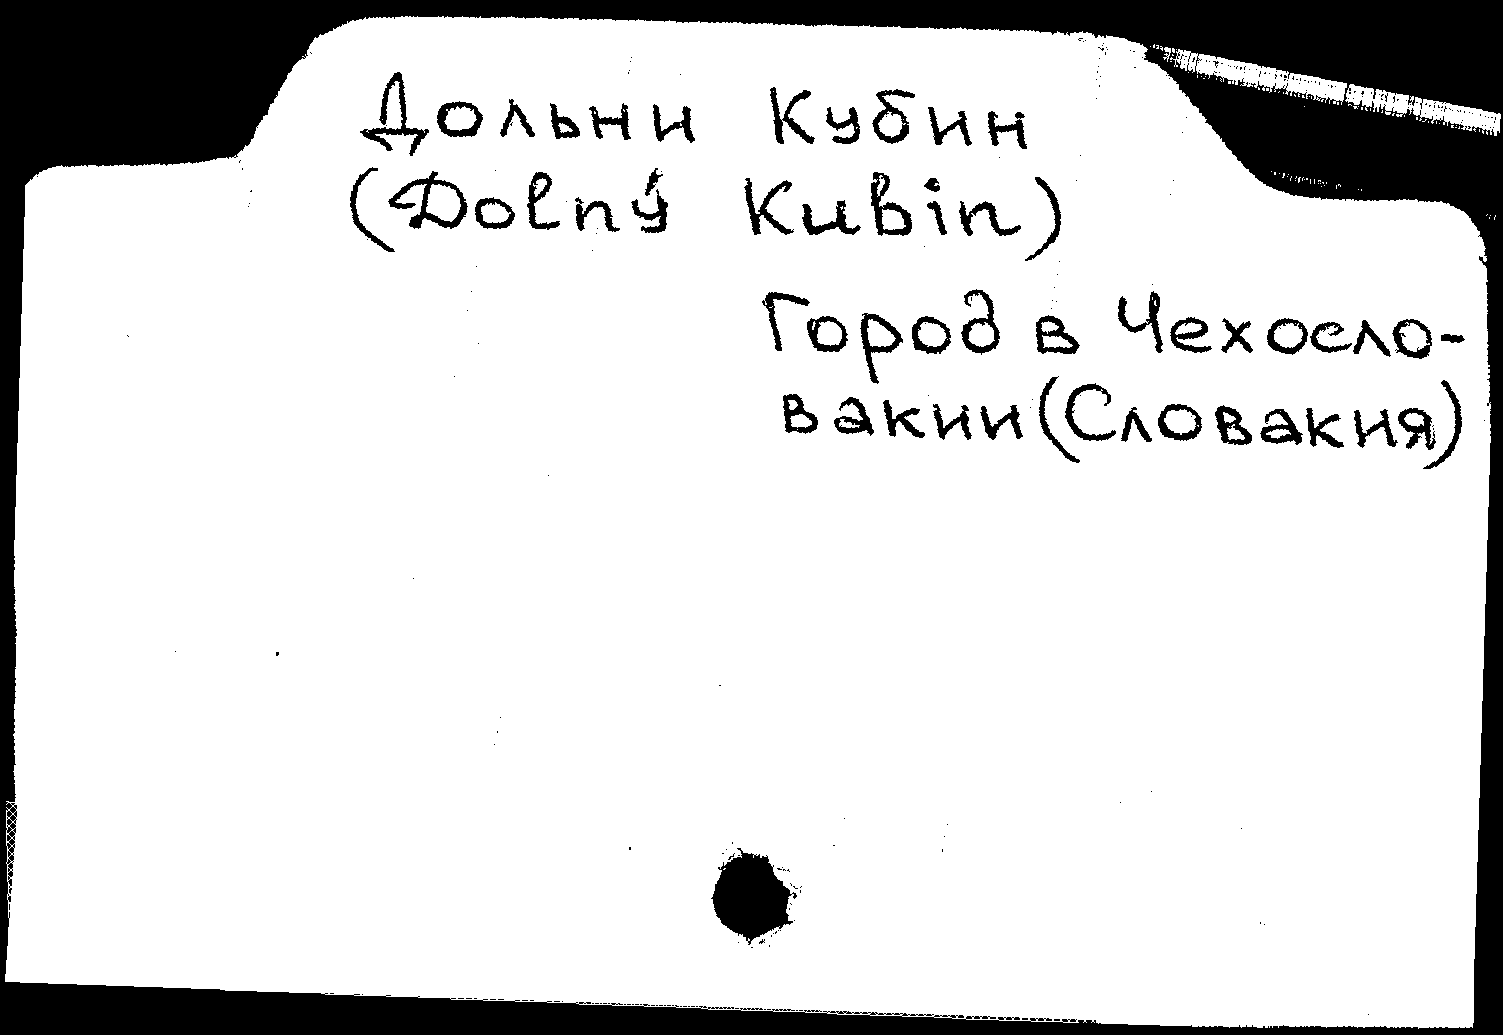 Дольни Кубин
(Dolný Kubin)
Город в Чехосло-
вакии (Словакия)